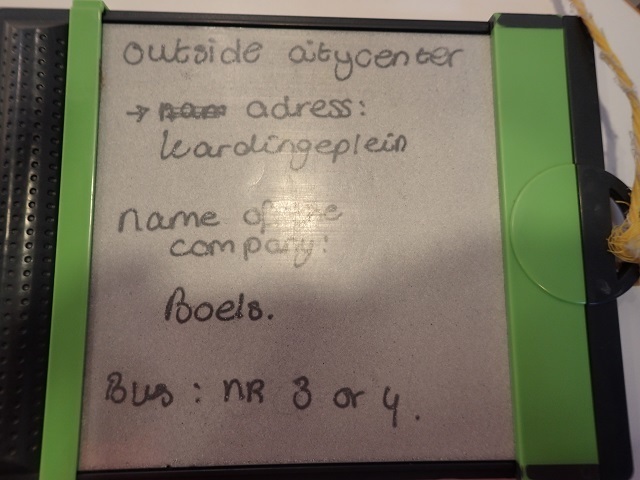 outside citycenter
→ adress:
kardingeplein
name of the
company:
Boels.
Bus : NR 3 or 4.